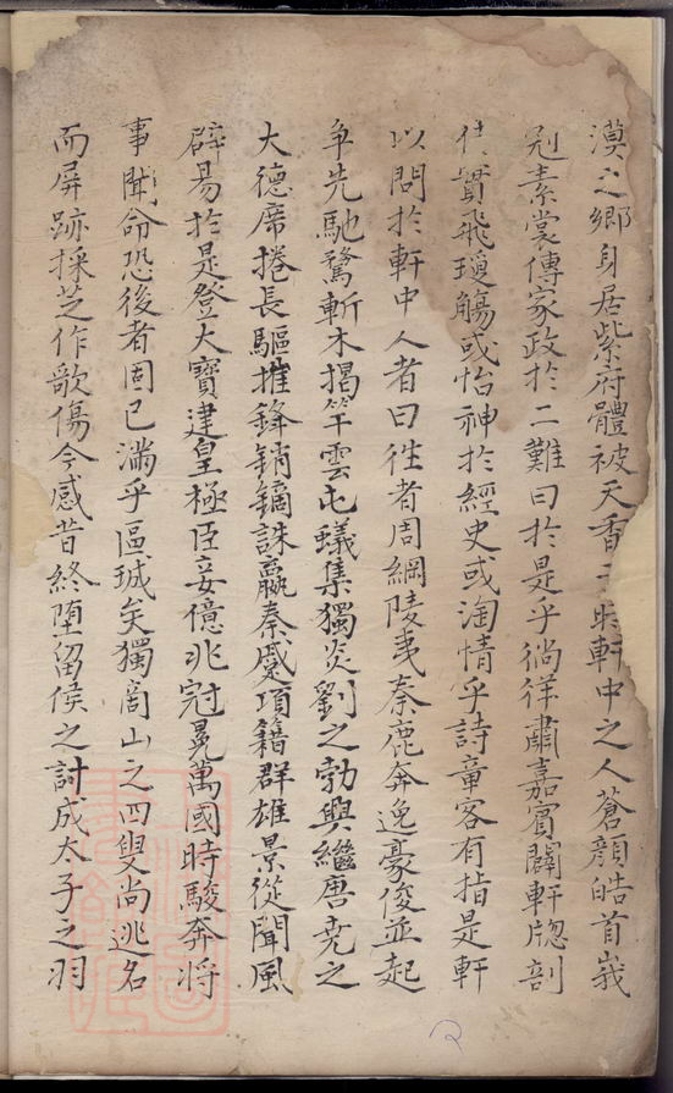 漠之鄉身居紫府體被天香
軒中之人蒼顔皓首峩
冠素裳傳家政於二難曰於是乎徜徉肅嘉賓闢軒牎剖
實飛瓊觴或怡神於經史或淘情乎詩章客有指是軒
以問於軒中人者曰徃者周綱陵夷秦鹿奔逸豪俊並起
争先馳騖斬木揭竿雲屯蟻集獨炎劉之勃興繼唐尭之
大德席捲長驅摧鋒銷鏑誅嬴秦蹙項籍群雄景從聞風
辟易於是登大寶建皇極臣妾億兆冠冕萬國時駿奔将
事聞命恐後者固已滿乎區域矣獨商山之四叟尚逃名
而屏跡採芝作歌傷今感昔終堕留侯之討成太子之羽